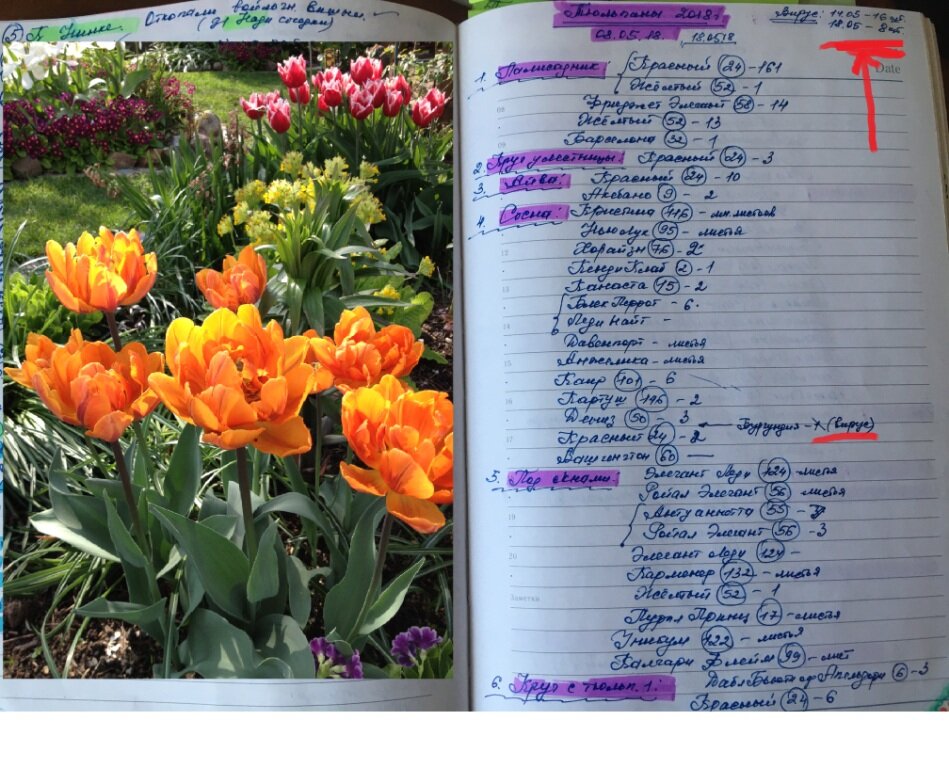 5 Б. Нинке.
Откопали войлочн. вишни.
(для Нади соседки)
Тюльпаны 2018г.
08.05.18. 18.05.18
Вирус: 14.05 - 16
18.05 - 8
Date
1. Палисадник: Красный (24) - 161
Жёлтый (52) - 1
Фриджет Элегант (58) - 14
Жёлтый (52) - 13
Барселона (32) - 1
2. Круг у лестницы: Красный (24) - 3
3. Айва: Красный (24) - 10
Акебано (9) - 2
4. Сосна: Кристина (116) - мн. листьев
Нью Лук (95) - листья
Хорайзн (76) - 2
Кенди Клаб (2) - 1
Канаста (15) - 2
Блек Перрот - 6.
Леди Найт -
Давенпорт - листья
Анжелика - листья
Каир (101) - 6
Картуш (196) - 2
Дейтз (50) - 3
Бургундия - х (вирус)
Красный (24) - 2
Вашингтон (60) —
5. Под окнами: Элегант Леди (124) - листья
Роял Элегант (56) листья
Антуанетта (55) - 3
Роял Элегант (56) - 3
Элегант Леди (124) -
Кармонер (132) - листья
Жёлтый (52) - 1
Заметки
Пурпл Принц (17) - листья
Уникум (122) - листья
Калгари Флейм (99) - лист
6. Круг с тюльп. 1: Дабл Бьюти оф Аппелдорн (6) - 3
Красный (24) - 6